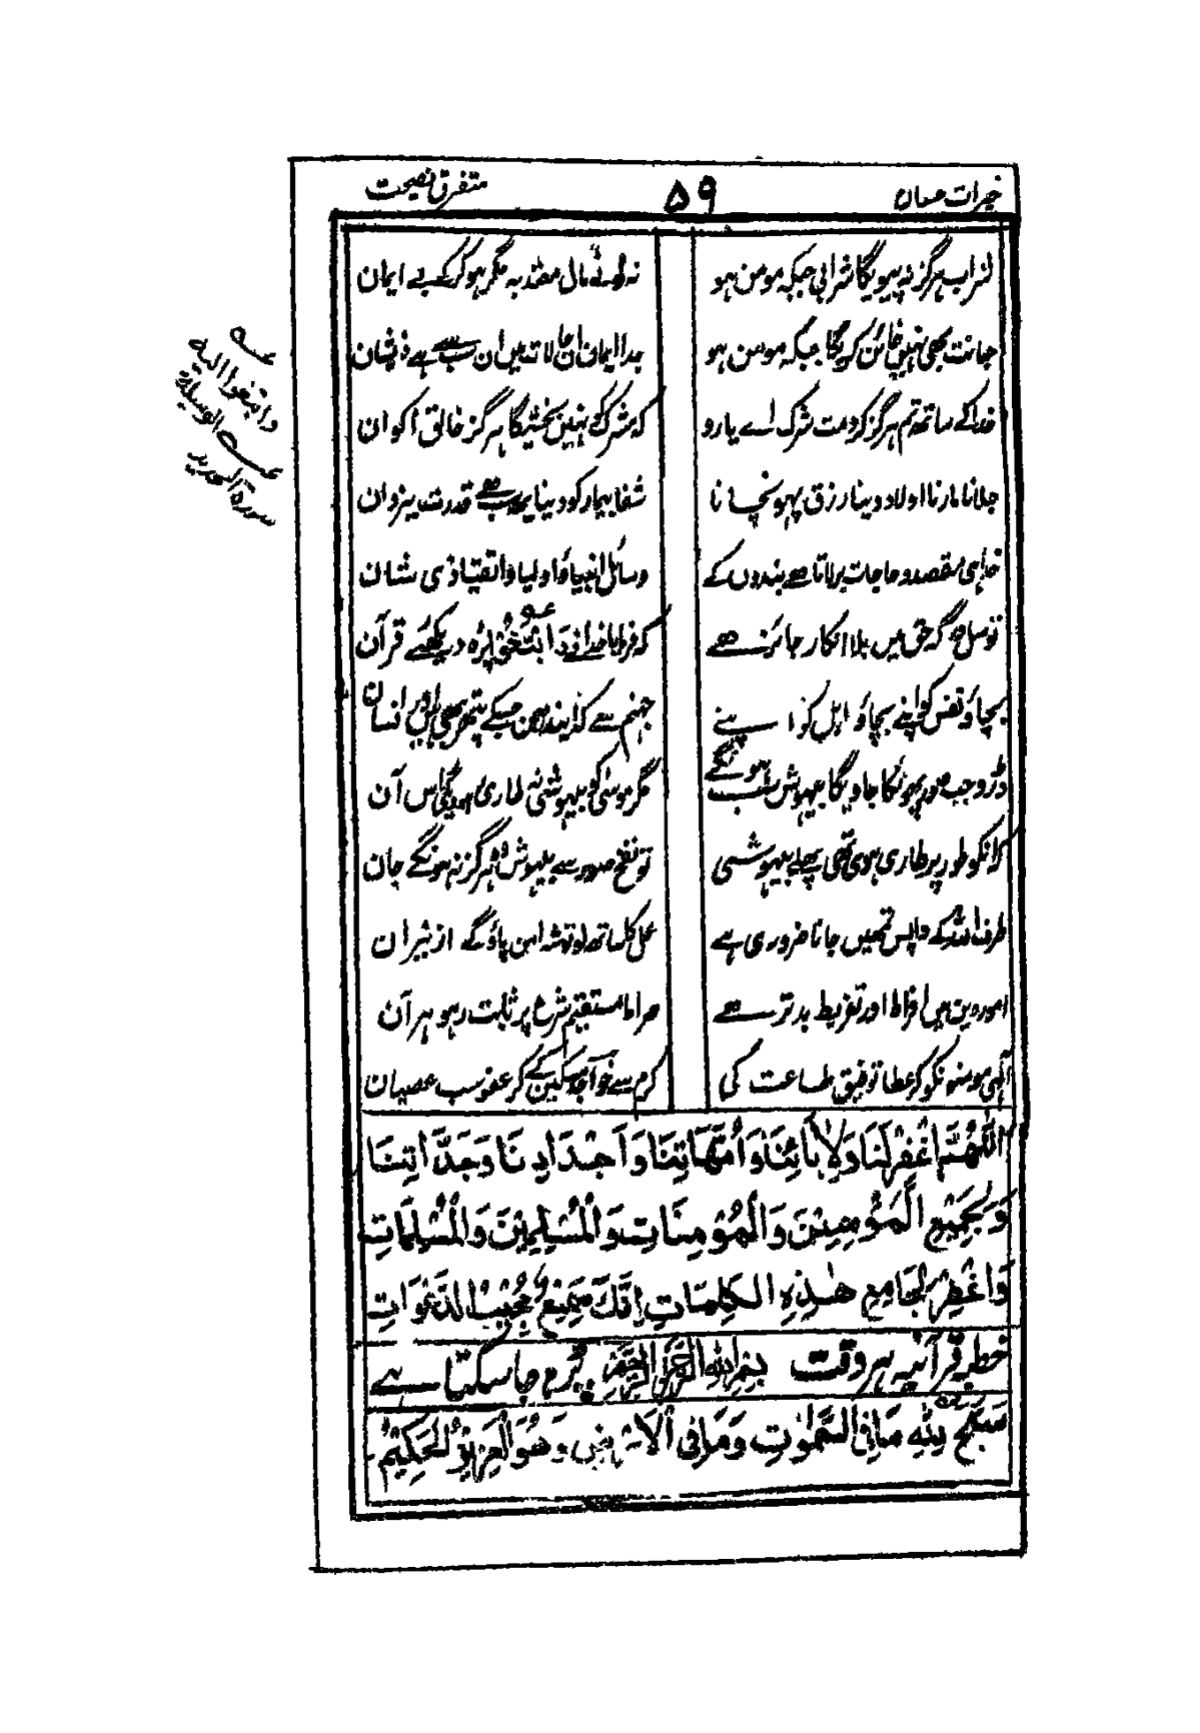 خیرات حسان ۵۹ متفرق نصیحت
شراب ہرگز نہ پیویگا شرابی جبکہ مومن ہو نہ لوٹے مال مغتدبہ مگر ہو کر کے بے ایمان
خیانت بھی نہیں خائن کریگا جبکہ مومن ہو جدا ایمان ان سب سے ہے ذیشان
خدا کے ساتھ تم ہرگز کرو مت شرک اے یارو کہ مشرک کو نہیں بخشیگا ہرگز خالق اکوان
جلانا مارنا اولاد دینا رزق پہونچانا شفا بیمار کو دینا یہ سب ہے قدرت یزدان
خدا ہی مقصد و حاجات برلاتا ہے بندوں کے وسائل انبیاء و اولیا و اتقیا ذی شان
توسل حق میں بلا انکار جائز ہے کہ فرمایا خدا نے وَابْتَغُوْا پڑہ دیکھئے قرآن
بچاؤ نفس کو اپنے بچاؤ اہل کو اپنے جہنم سے کہ ایندھن جسکے پتھر بھی ہیں اور انسان
ڈرو جب صور پھونکا جاویگا بیہوش سب ہونگے مگر موسیٰ کو بیہوشی نہ طاری ہوویگی اس آن
کہ انکو طور پر طاری ہوئی تھی پہلے بیہوشی تو نفخ صور سے بیہوش وہ ہرگز نہ ہونگے جان
طرف اللہ کے واپس تمھیں جانا ضروری ہے عمل کا ساتھ لو توشہ امن پاؤگے از نیران
امور دین میں افراط اور تفریط بدتر ہے صراط مستقیم شرع پر ثابت رہو ہر آن
الٰہی مومنونکو کر عطا توفیق طاعت کی کرم سے خواجہ مسکین کے کر عفو سب عصیان
اَللّٰھُمَّ اغْفِرْلَنَا وَلِاٰبَائِنَا وَاُمَّھَاتِنَا وَاَجْدَادِنَا وَجَدَّاتِنَا
وَلِجَمِیْعِ الْمُؤْمِنِیْنَ وَالْمُؤْمِنَاتِ وَالْمُسْلِمِیْنَ وَالْمُسْلِمَاتِ
وَاغْفِرْ لِجَامِعِ ھٰذِہِ الْکَلِمَاتِ اِنَّکَ سَمِیْعٌ مُجِیْبُ الدَّعْوَاتِ
خطبہ قرآنیہ ہر وقت بِسْمِ اللہِ الرَّحْمٰنِ الرَّحِیْمِ پڑھا جا سکتا ہے
سَبَّحَ لِلّٰہِ مَا فِی السَّمٰوٰتِ وَمَا فِی الْاَرْضِ وَھُوَ الْعَزِیْزُ الْحَکِیْمُ
عہ
وابتغوا الیہ
الوسیلة
عہ
سورة الحدید